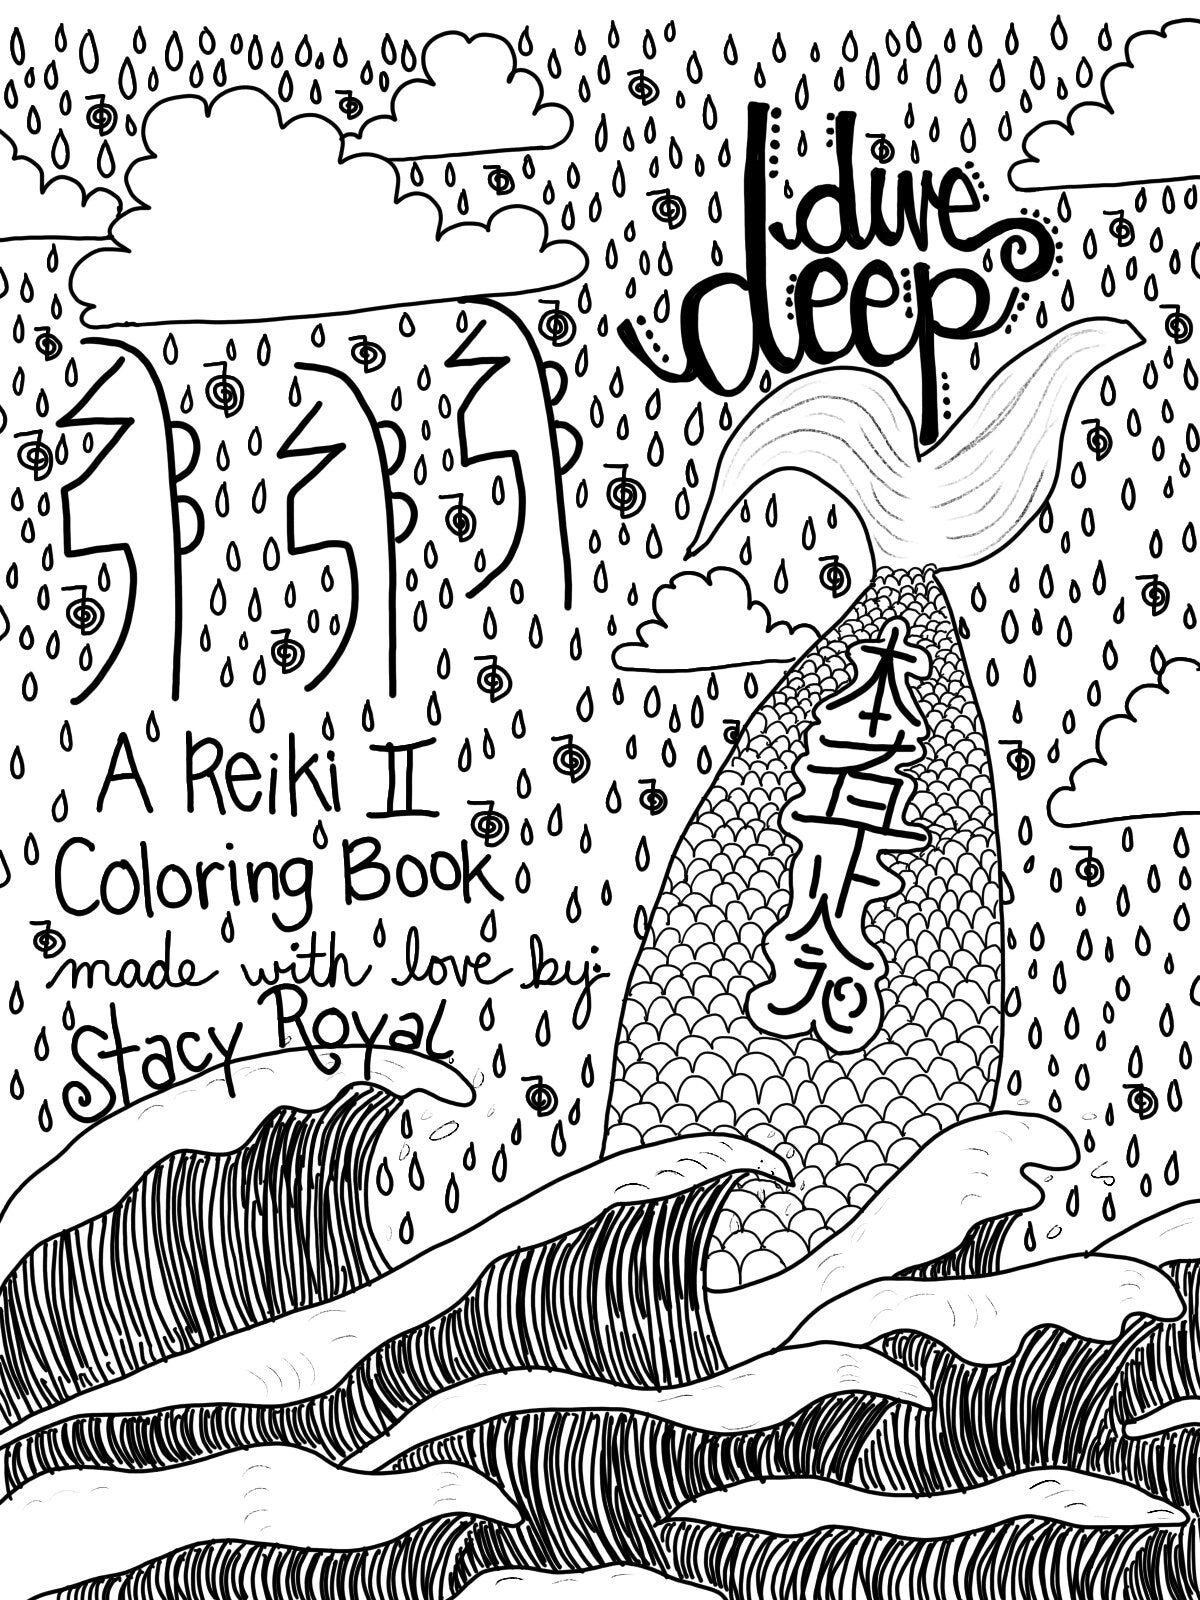 dive
deep
A Reiki II
Coloring Book
made with love by:
Stacy Royal